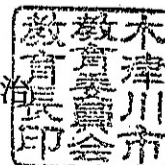 木津川市
教育委員会
教育長印
治